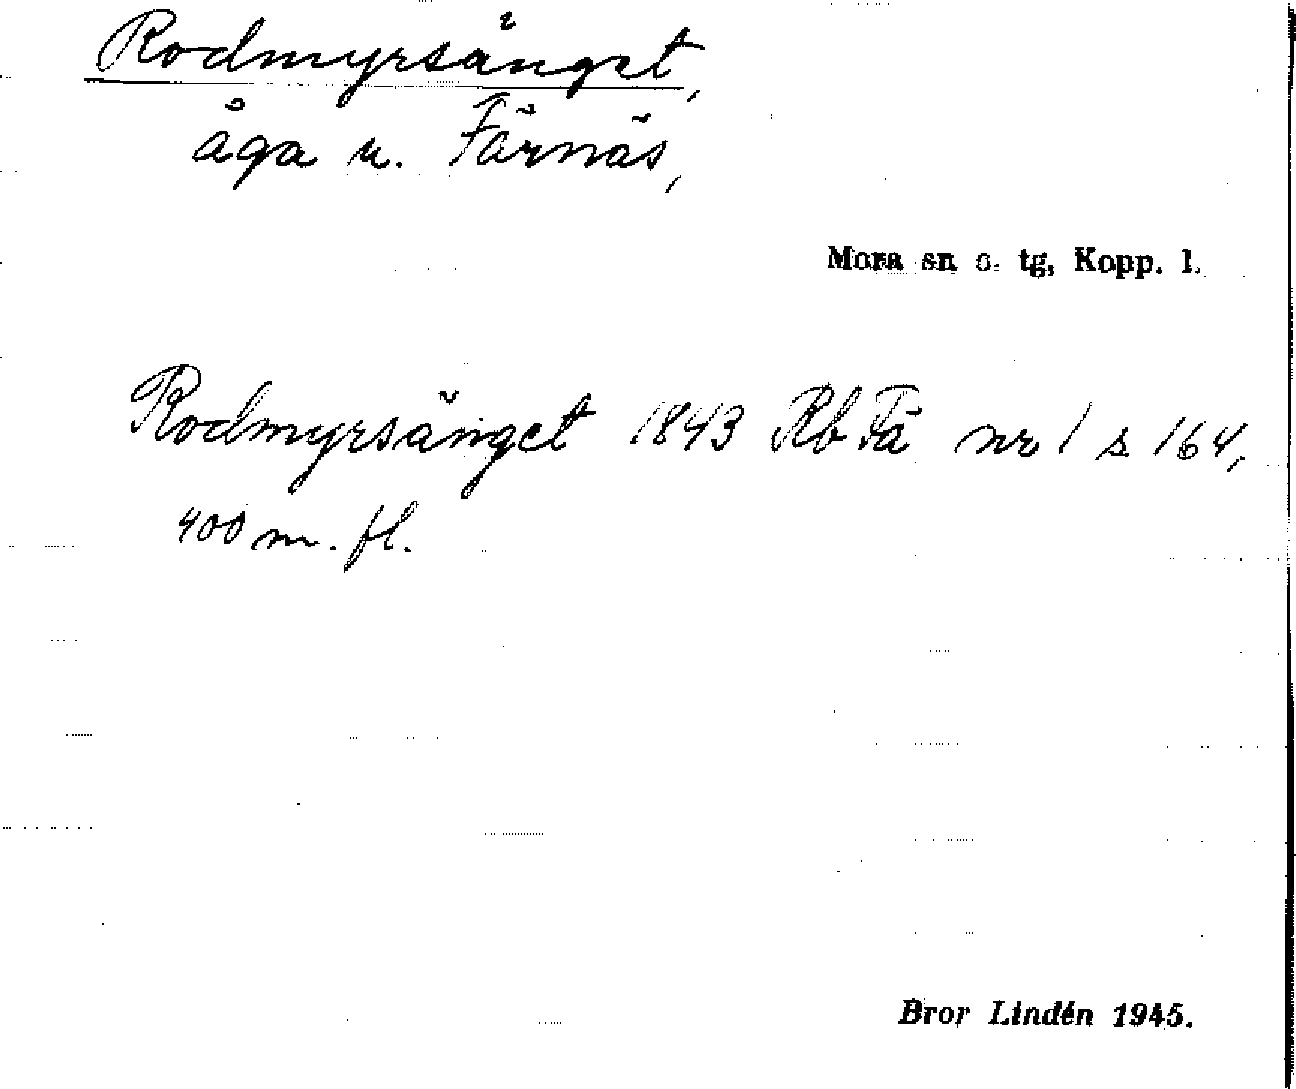 Rodmyrsänget,
åga u. Färnäs,
Mora sn o. tg, Kopp. l.
Rodmyrsänget 1843 Rb Fä nr 1 s 164,
400 m. fl.
Bror Lindén 1945.